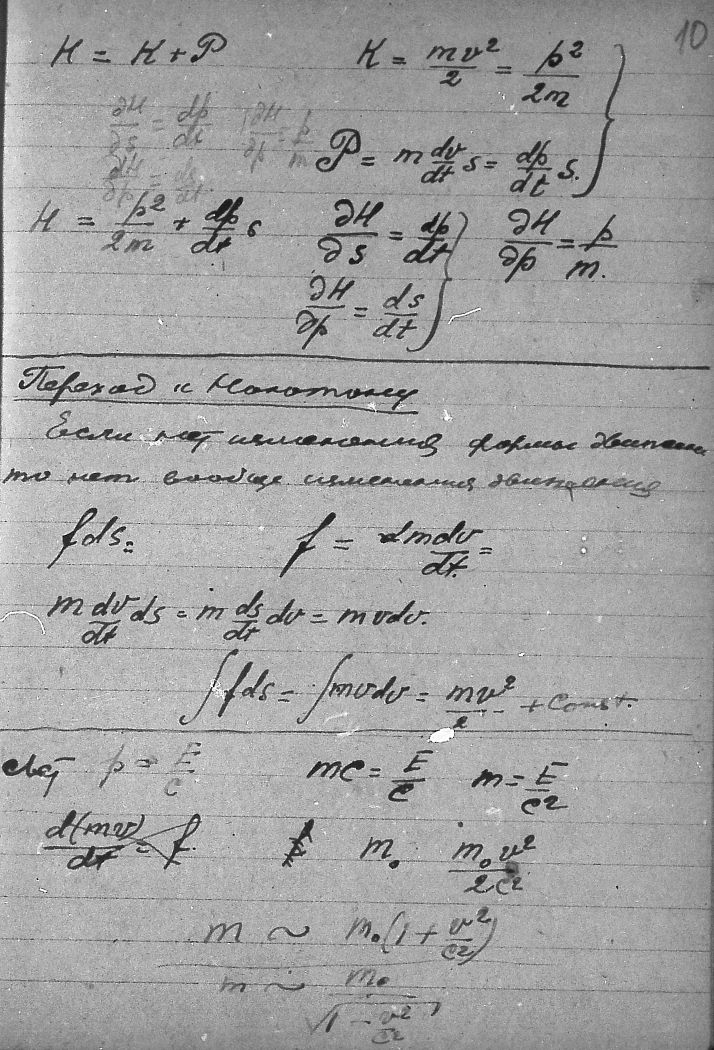 10
H = K + P K = mv²/2 = p²/2m
∂H/∂s = dp/dt ∂H/∂p = p/m
P = m dv/dt s = dp/dt s.
∂H/∂p = ds/dt.
H = p²/2m + dp/dt s ∂H/∂s = dp/dt ∂H/∂p = p/m.
∂H/∂p = ds/dt
Переход к
Если нет изменения формы движения
то нет вообще изменения движения
fds = f = d mdv/dt =
m dv/dt ds = m ds/dt dv = mvdv.
∫fds = ∫mvdv = mv²/2 + Const.
Свет p = E/c mc = E/c m = E/c²
d(mv)/dt = f m₀ m₀v²/2c²
m ~ m₀(1 + v²/c²)
m ~ m₀/√(1 - v²/c²)